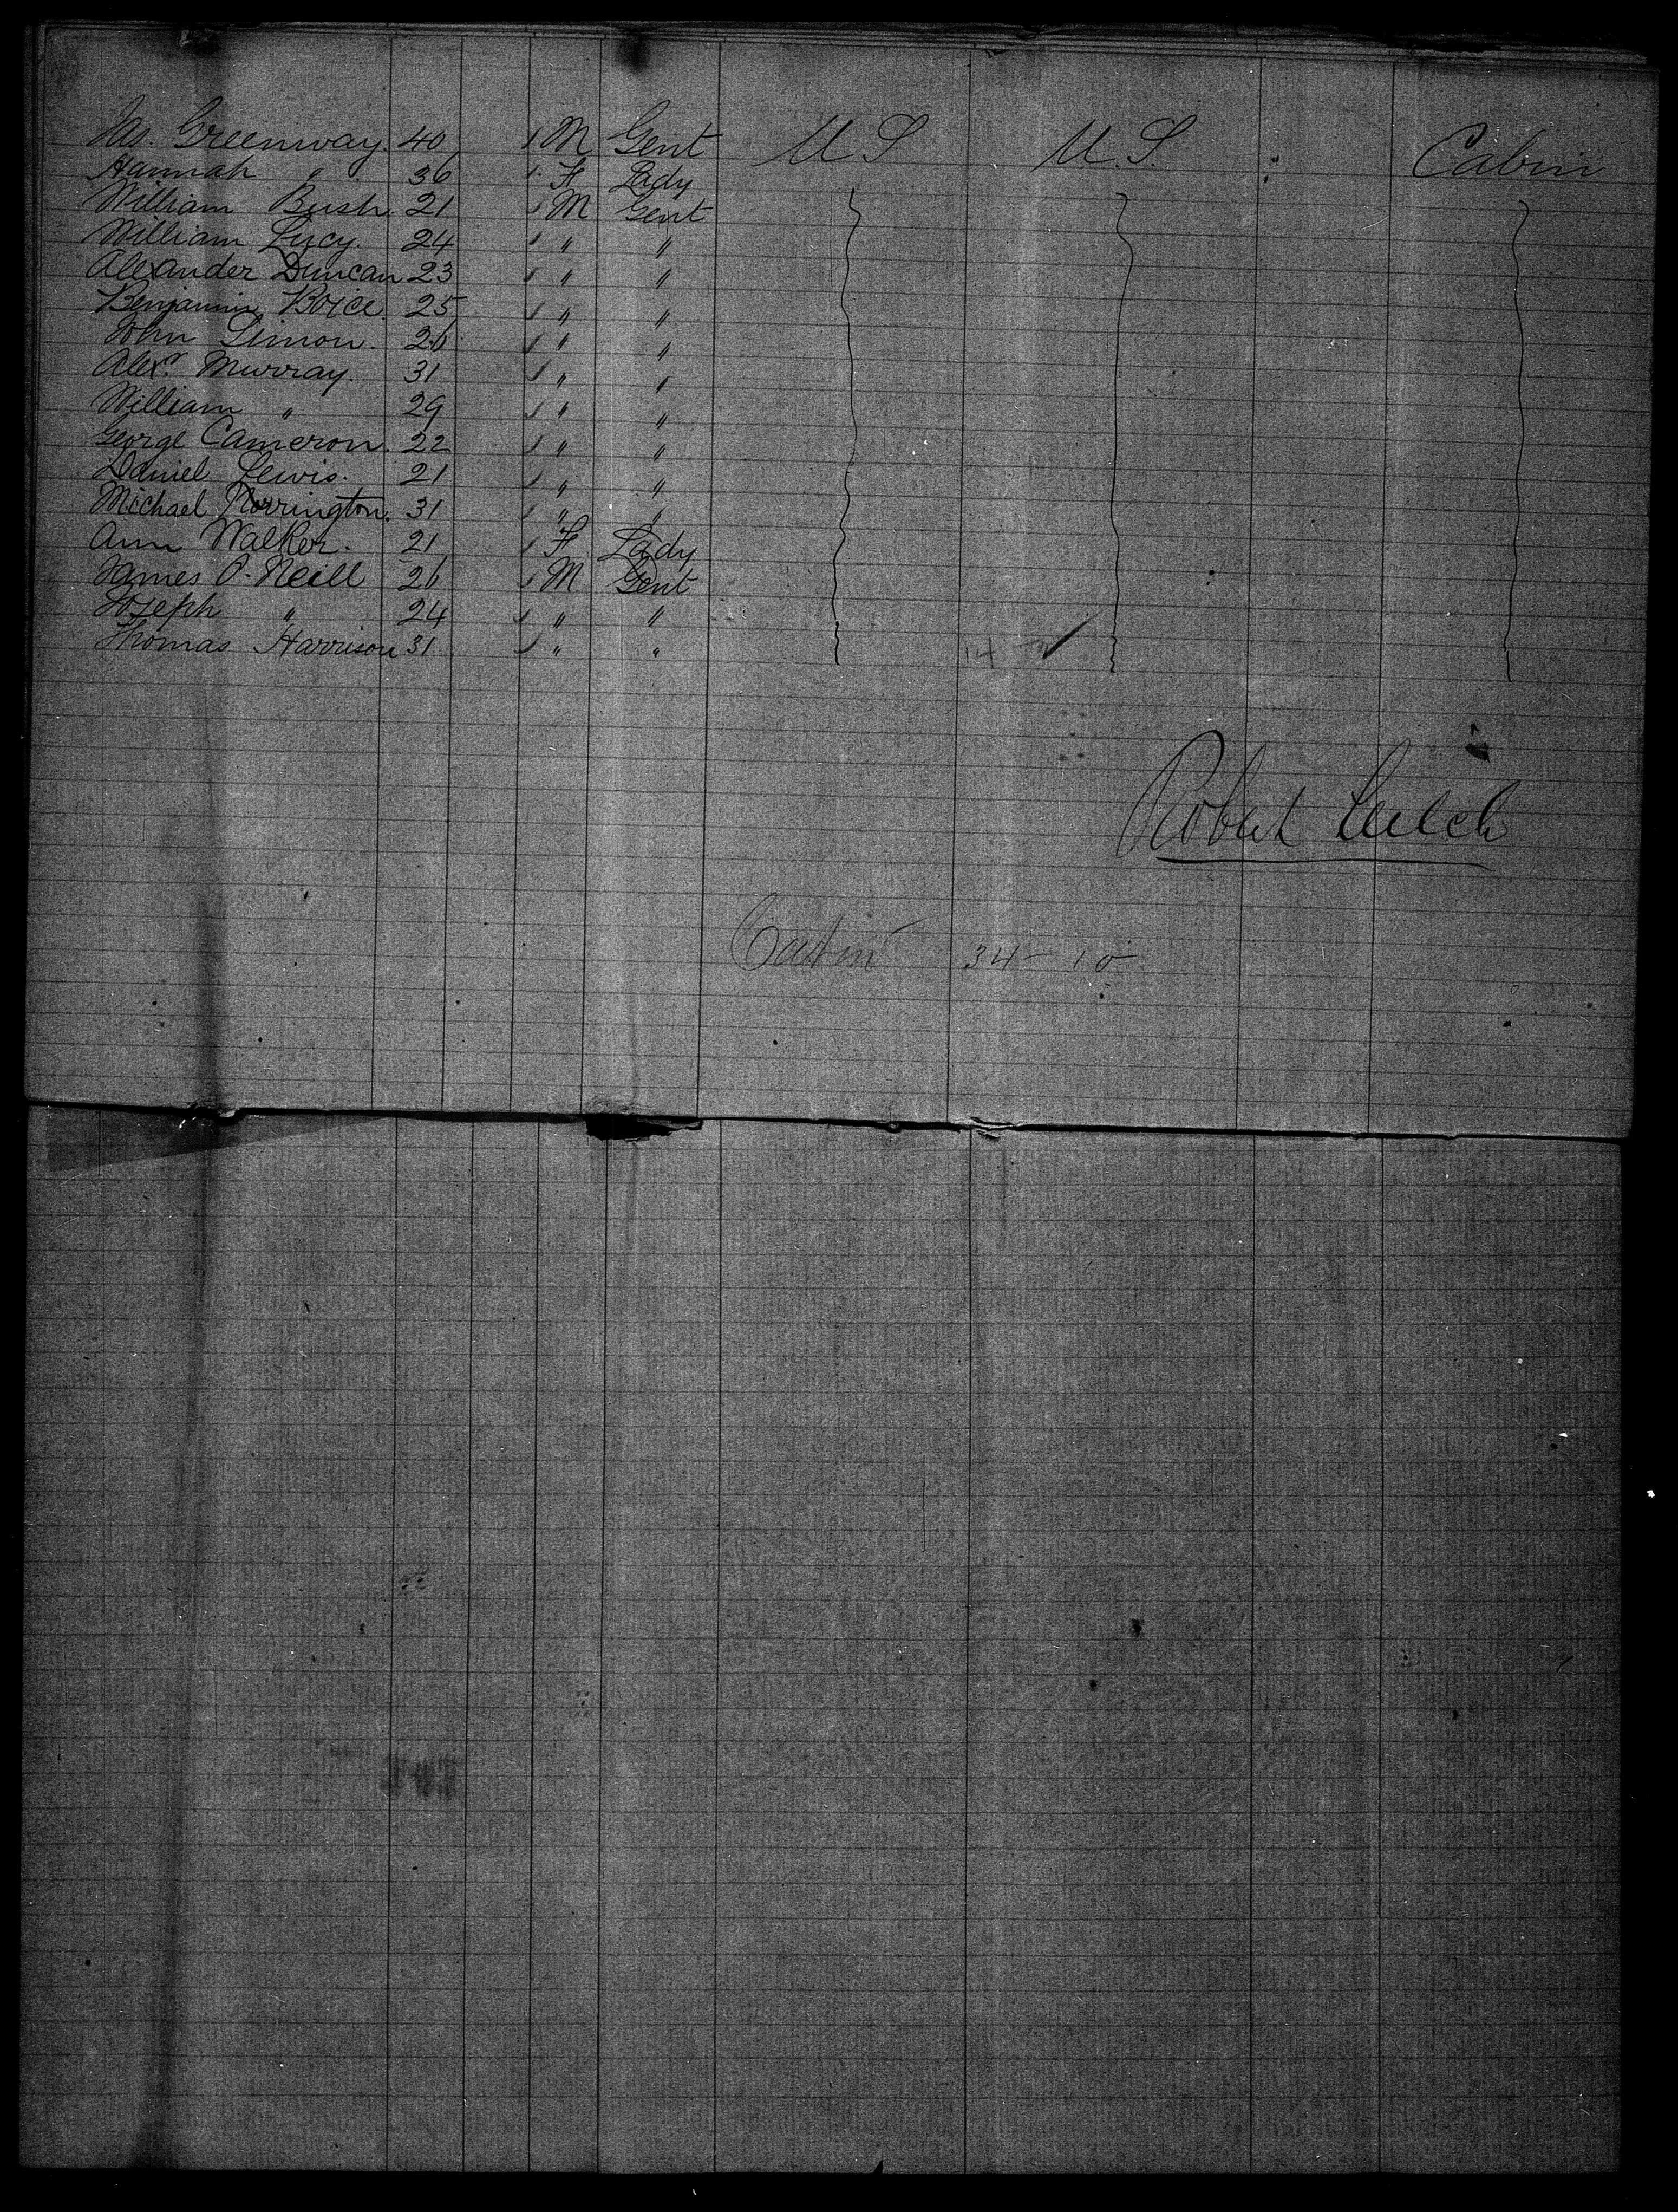 Jas. Greenway. 40 M Gent U S U. S. Cabin
Hannah " 36 F Lady
William Bush. 21 M Gent
William Lucy. 24 " "
Alexander Duncan 23 " "
Benjamin Boice. 25 " "
John Simon. 26 " "
Alexr. Murray. 31 " "
William " 29 " "
George Cameron. 22 " "
Daniel Lewis. 21 " "
Michael Norrington. 31 " "
Ann Walker. 21 F Lady
James O. Neill 26 M Gent
Joseph " 24 " "
Thomas Harrison 31 " " 14
Robert Leitch
Cabin 34 - 10